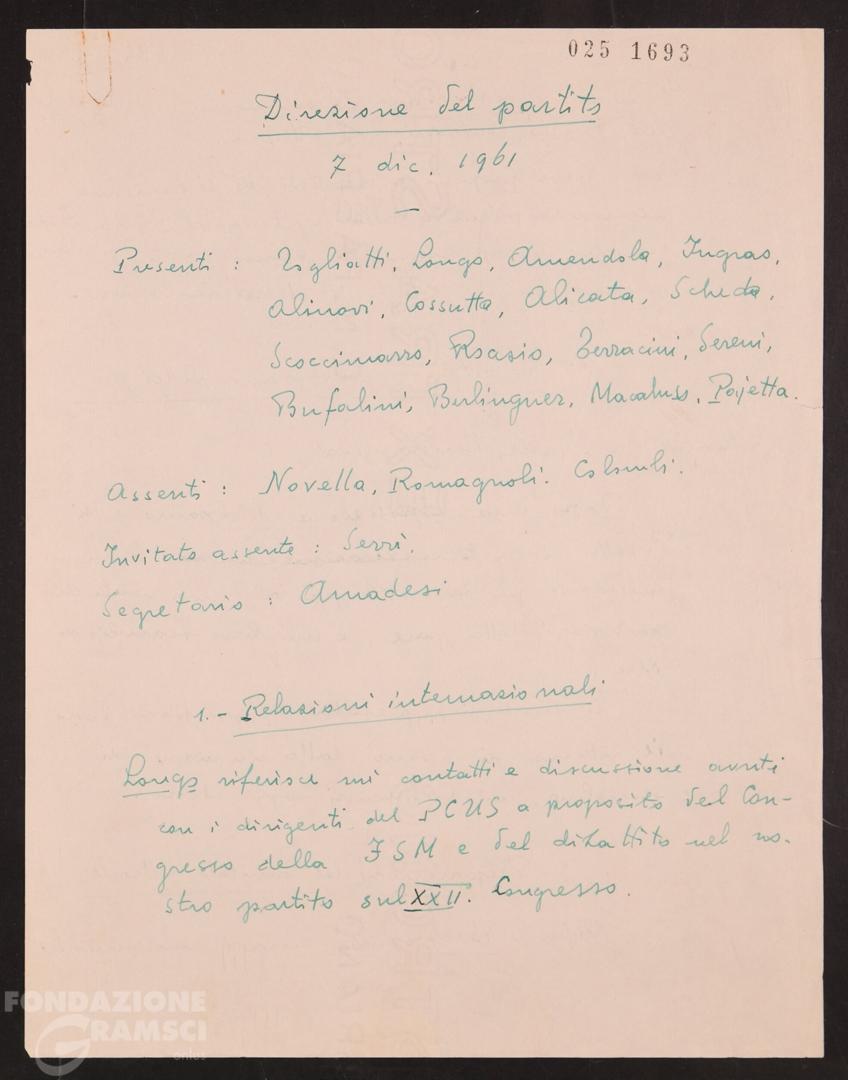 025 1693
Direzione del partito
7 dic. 1961
—
Presenti : Togliatti, Longo, Amendola, Ingrao,
Alinovi, Cossutta, Alicata, Scheda,
Scoccimarro, Roasio, Terracini, Sereni,
Bufalini, Berlinguer, Macaluso, Pajetta.
Assenti : Novella, Romagnoli. Colombi.
Invitato assente : Serri.
Segretario : Amadesi
1.- Relazioni internazionali
Longo riferisce sui contatti e discussione avuti
con i dirigenti del PCUS a proposito del Con-
gresso della FSM e del dibattito nel no-
stro partito sul XXII. Congresso.
FONDAZIONE
GRAMSCI
onlus